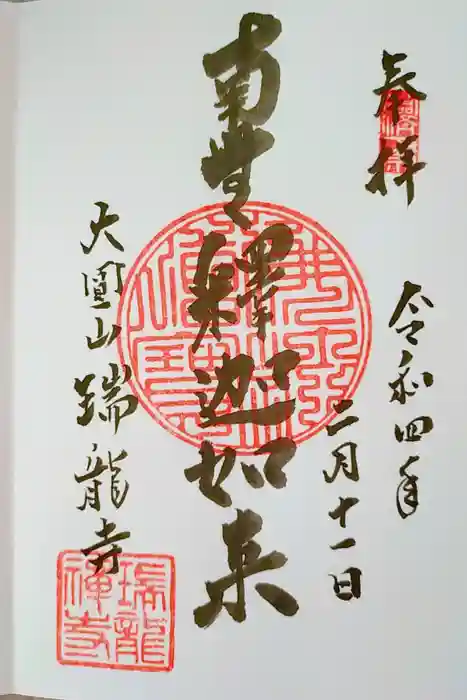 奉拝
令和四年
二月十一日
南無釋迦如来
大圓山瑞龍寺
瑞龍
禅寺